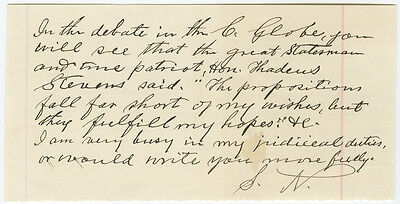 In the debate in the C. Globe, you
will see that the great Statesman
and true patriot, Hon. Thadeus
Stevens said. "The propositions
fall far short of my wishes, but
they fulfill my hopes." &c.
I am very busy in my judiceal duties,
or would write you more fully.
S. N.